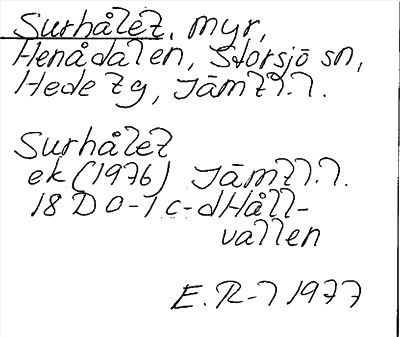 Surhålet, myr,
Henådalen, Storsjö sn,
Hede tg, Jämtl.l.
Surhålet
ek (1976) Jämtl.l.
18 D 0-1 c-d Håll-
vallen
E. R-l 1977